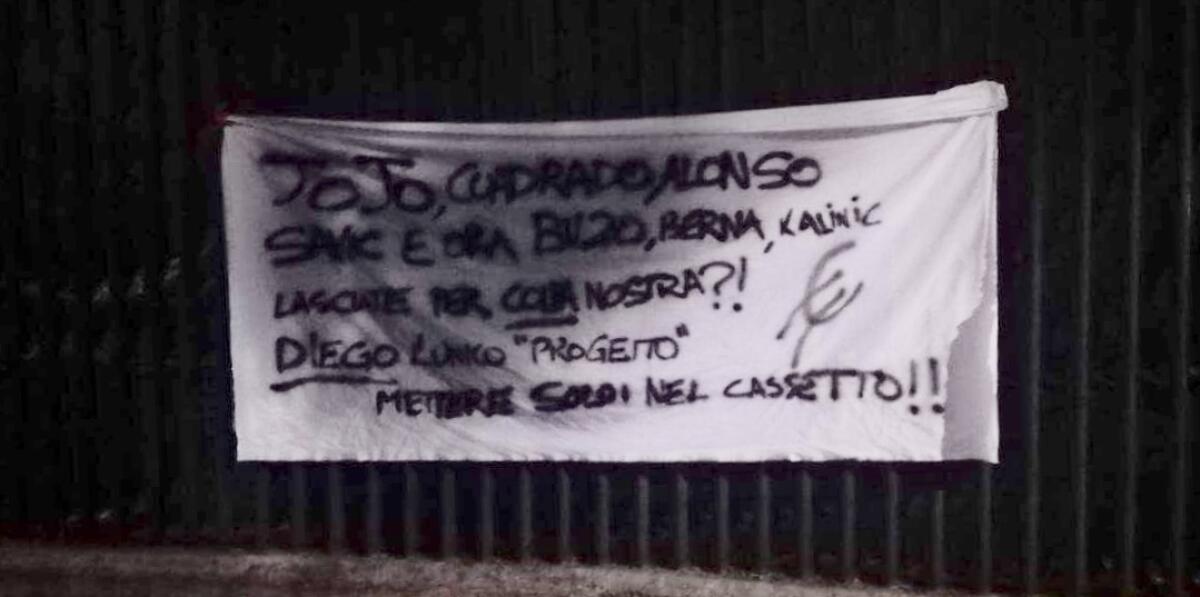 JOJO, CUADRADO, ALONSO
SAVIC E ORA BUZO, BERNA, KALINIC
LASCIATE PER COLPA NOSTRA?!
DIEGO L'UNICO "PROGETTO"
METTERE SOLDI NEL CASSETTO!!